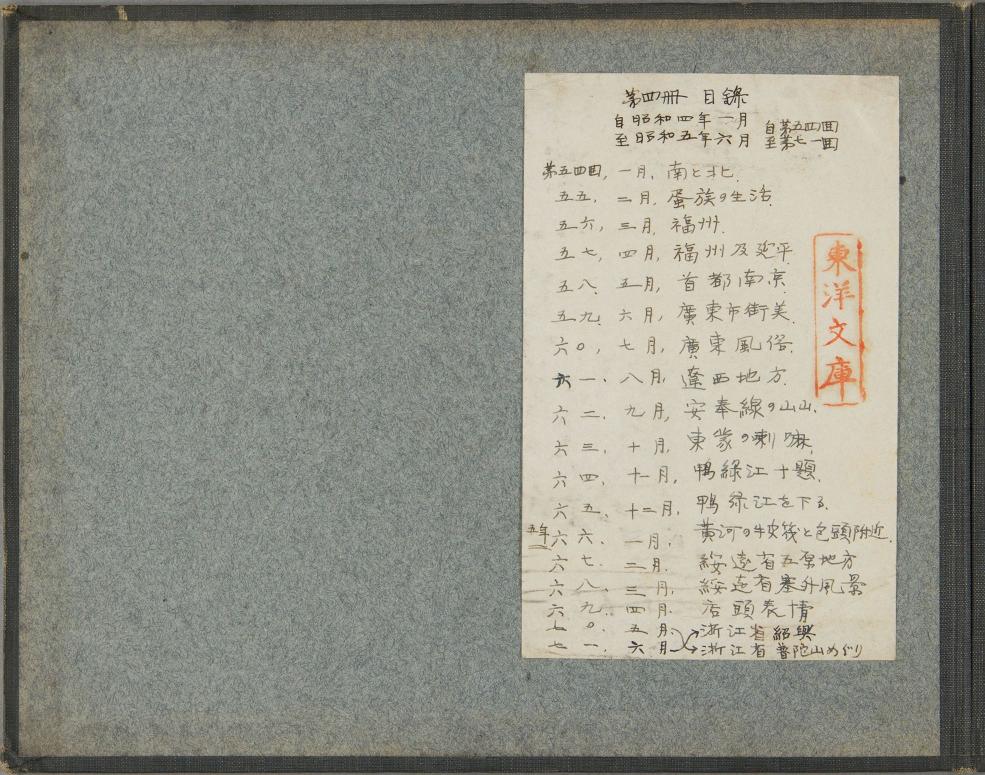 第四冊 目錄
自昭和四年一月
至昭和五年六月
自第五四回
至第七一回
第五四回, 一月, 南と北.
五五, 二月, 蛋族の生活.
五六, 三月, 福州.
五七, 四月, 福州及延平
五八. 五月, 首都南京.
五九. 六月, 廣東市街美.
六〇, 七月, 廣東風俗.
六一. 八月, 遼西地方.
六二. 九月, 安奉線の山山.
六三. 十月, 東蒙の喇嘛.
六四. 十一月, 鴨綠江十題.
六五. 十二月, 鴨綠江を下る.
五年 六六. 一月. 黃河の牛皮筏と包頭附近.
六七. 二月. 綏遠省五原地方
六八. 三月. 綏遠省塞外風景
六九. 四月. 店頭表情
七〇. 五月. 浙江省紹興
七一. 六月 浙江省普陀山めぐり
東洋文庫